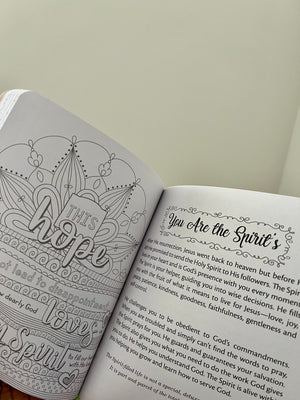 THIS
hope
not lead to disappointment
dearly God
loves
Spirit
You Are the Spirit's
his resurrection, Jesus went back to heaven but before H
promised to send the Holy Spirit to His followers. The
is God's presence with you every momen
guiding you into wise decisions. He fill
with the fruit of what it means to live for Jesus—love, joy,
peace, kindness, goodness, faithfulness, gentleness and
challenges you to be obedient to God's commandments.
when you are troubled and simply can't find the words to pray, the
Spirit prays for you. He guards and guarantees your salvation.
The Spirit also gives you what you need to do the work God gives
you to do. He helps you understand God. The Spirit is alive within
you, helping you grow and learn how to serve God.
The Spirit filled life is not a special, delux
It is part and parcel of the